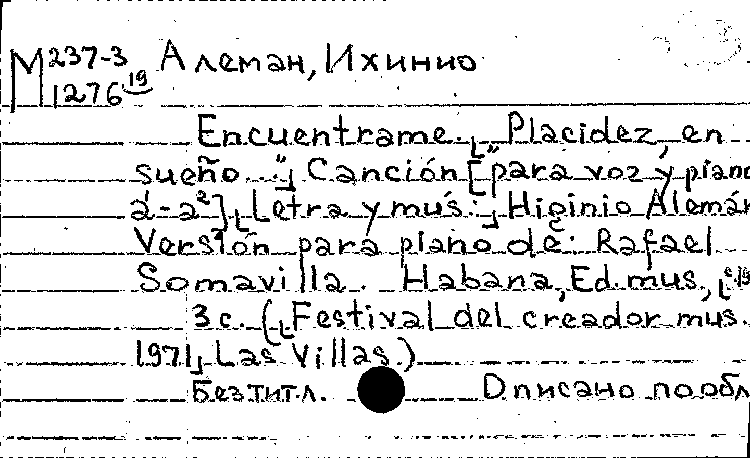 М 237-3 Алеман, Ихинио
1276 19
Encuentrame. ⌊"Placidez, en
sueño..."⌋ Canción [para voz y piano
d'-a²] ⌊Letra y mús.:⌋ Higinio Alemán
Versión para piano de: Rafael
Somavilla. Habana, Ed. mus.,
3 с. (⌊Festival del creador mus.
1971⌋ Las Villas.)
Без тит. л. Описано по обл